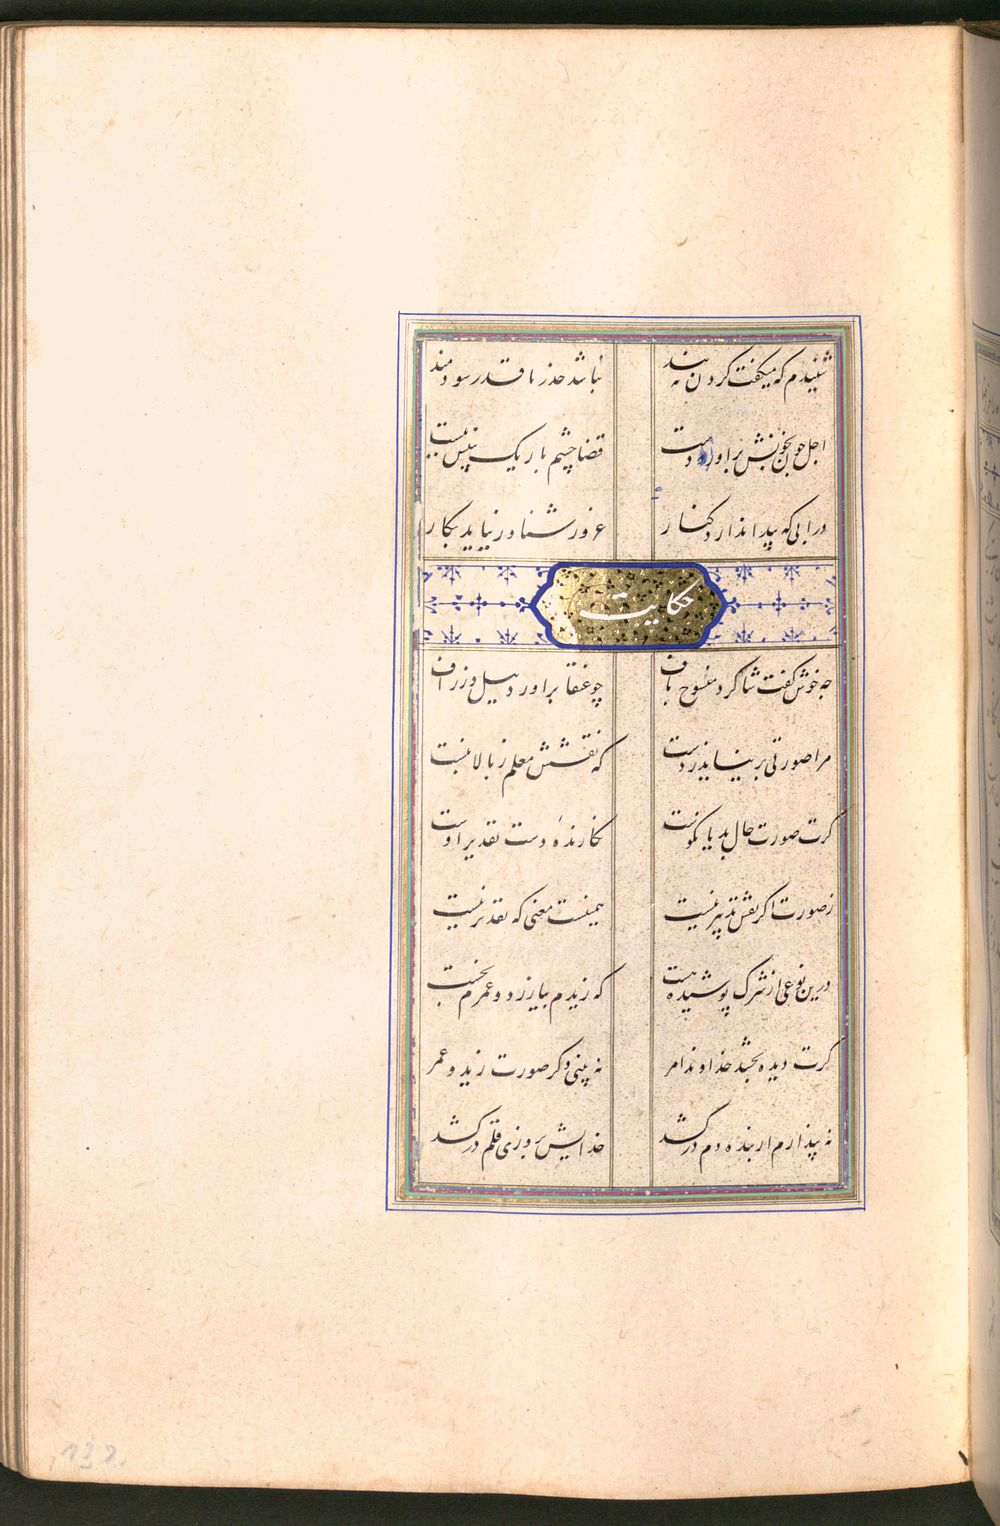 شنیدم که میگفت کردن به بند نباشد حذر با قدر سودمند
اجل چون بخونش براورد دست قضا چشم باریک بینش ببست
درابی که پیدا ندارد کنار غرور شناور نیاید بکار
حکایت
چه خوش کفت شاکرد منسوج باف چو عنقا براورد و پیل و زراف
مرا صورتی برنیاید ز دست که نقشش معلم ز بالا نبست
کرت صورت حال بد یا نکوست نکارندهٔ دست تقدیر اوست
ز صورت اکر نقش تدبیر نیست همینست معنی که تقدیر نیست
درین نوعی از شرک پوشیده هست که زیدم بیازرد و عمرم بخست
کرت دیده بخشد خداوند امر نه بینی دکر صورت زید و عمر
نه پندارم ار بنده دم درکشد خدایش بروزی قلم درکشد
132.